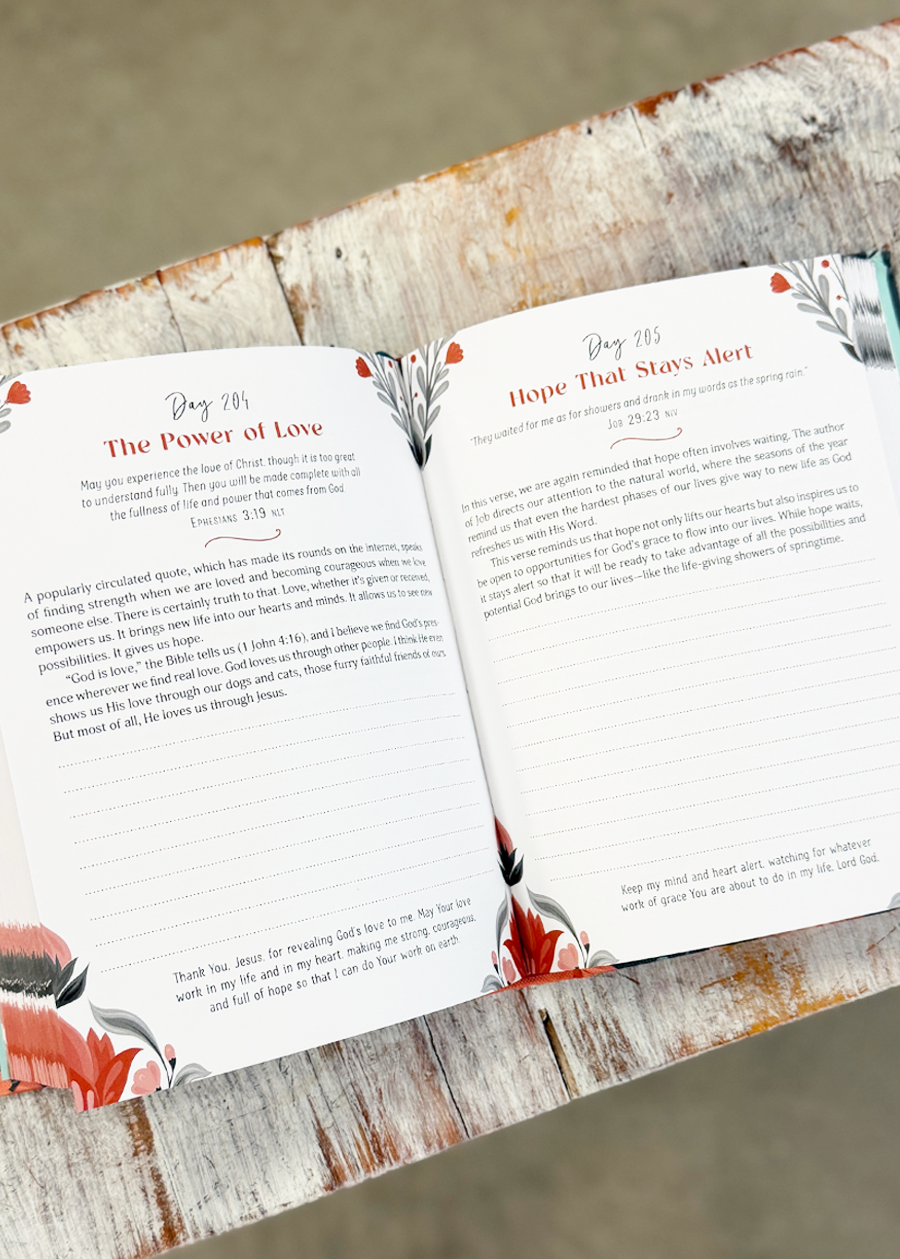 Day 204
The Power of Love
May you experience the love of Christ, though it is too great
to understand fully. Then you will be made complete with all
the fullness of life and power that comes from God.
Ephesians 3:19 NLT
A popularly circulated quote, which has made its rounds on the internet, speaks
of finding strength when we are loved and becoming courageous when we love
someone else. There is certainly truth to that. Love, whether it's given or received,
empowers us. It brings new life into our hearts and minds. It allows us to see new
possibilities. It gives us hope.
"God is love," the Bible tells us (1 John 4:16), and I believe we find God's pres-
ence wherever we find real love. God loves us through other people. I think He even
shows us His love through our dogs and cats, those furry faithful friends of ours.
But most of all, He loves us through Jesus.
Thank You, Jesus, for revealing God's love to me. May Your love
work in my life and in my heart, making me strong, courageous,
and full of hope so that I can do Your work on earth.
Day 205
Hope That Stays Alert
"They waited for me as for showers and drank in my words as the spring rain."
Job 29:23 NIV
In this verse, we are again reminded that hope often involves waiting. The author
of Job directs our attention to the natural world, where the seasons of the year
remind us that even the hardest phases of our lives give way to new life as God
refreshes us with His Word.
This verse reminds us that hope not only lifts our hearts but also inspires us to
be open to opportunities for God's grace to flow into our lives. While hope waits,
it stays alert so that it will be ready to take advantage of all the possibilities and
potential God brings to our lives—like the life-giving showers of springtime.
Keep my mind and heart alert, watching for whatever
work of grace You are about to do in my life, Lord God.